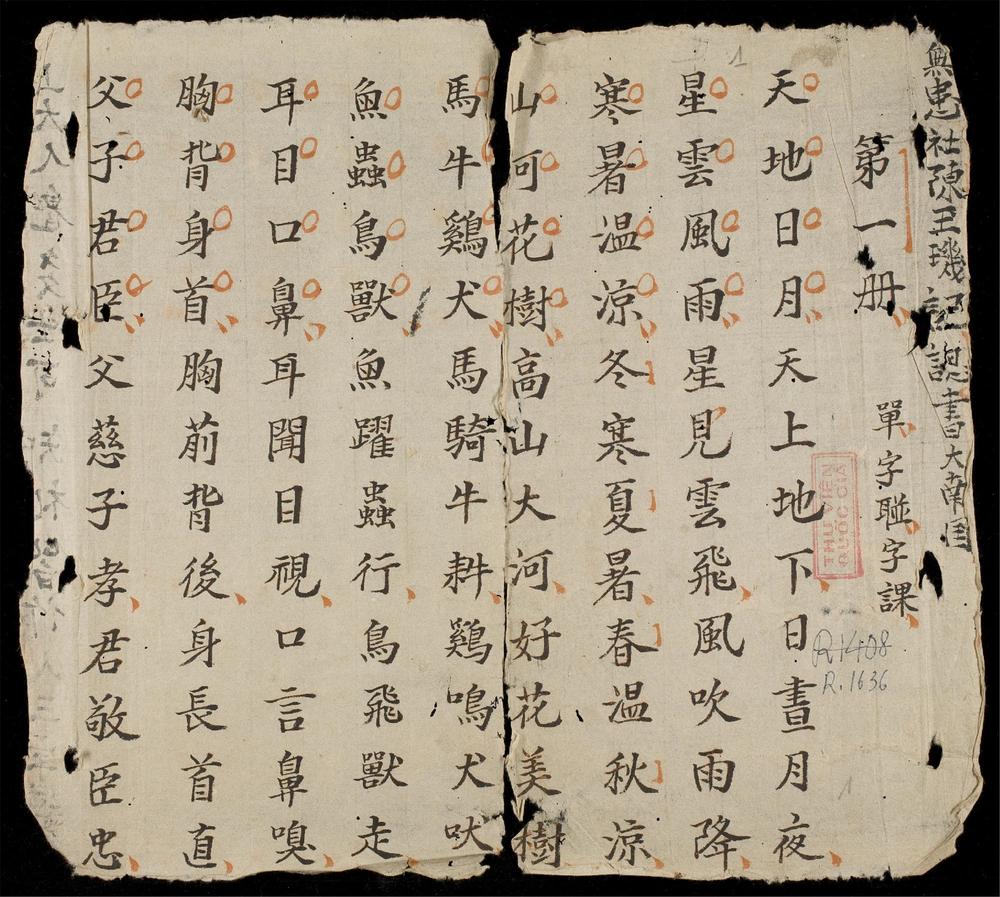 無忠社陳玉璣記認書大南国
第一册 單字聮字課
天地日月天上地下日晝月夜
星雲風雨星見雲飛風吹雨降
寒暑温凉冬寒夏暑春温秋凉
山河花樹高山大河好花美樹
馬牛鷄犬馬騎牛耕鷄鳴犬吠
魚蟲鳥獸魚躍蟲行鳥飛獸走
耳目口鼻耳聞目視口言鼻嗅
胸背身首胸前背後身長首直
父子君臣父慈子孝君敬臣忠
上大人
THƯ VIỆN
QUỐC GIA
R1408
R.1636
1
1